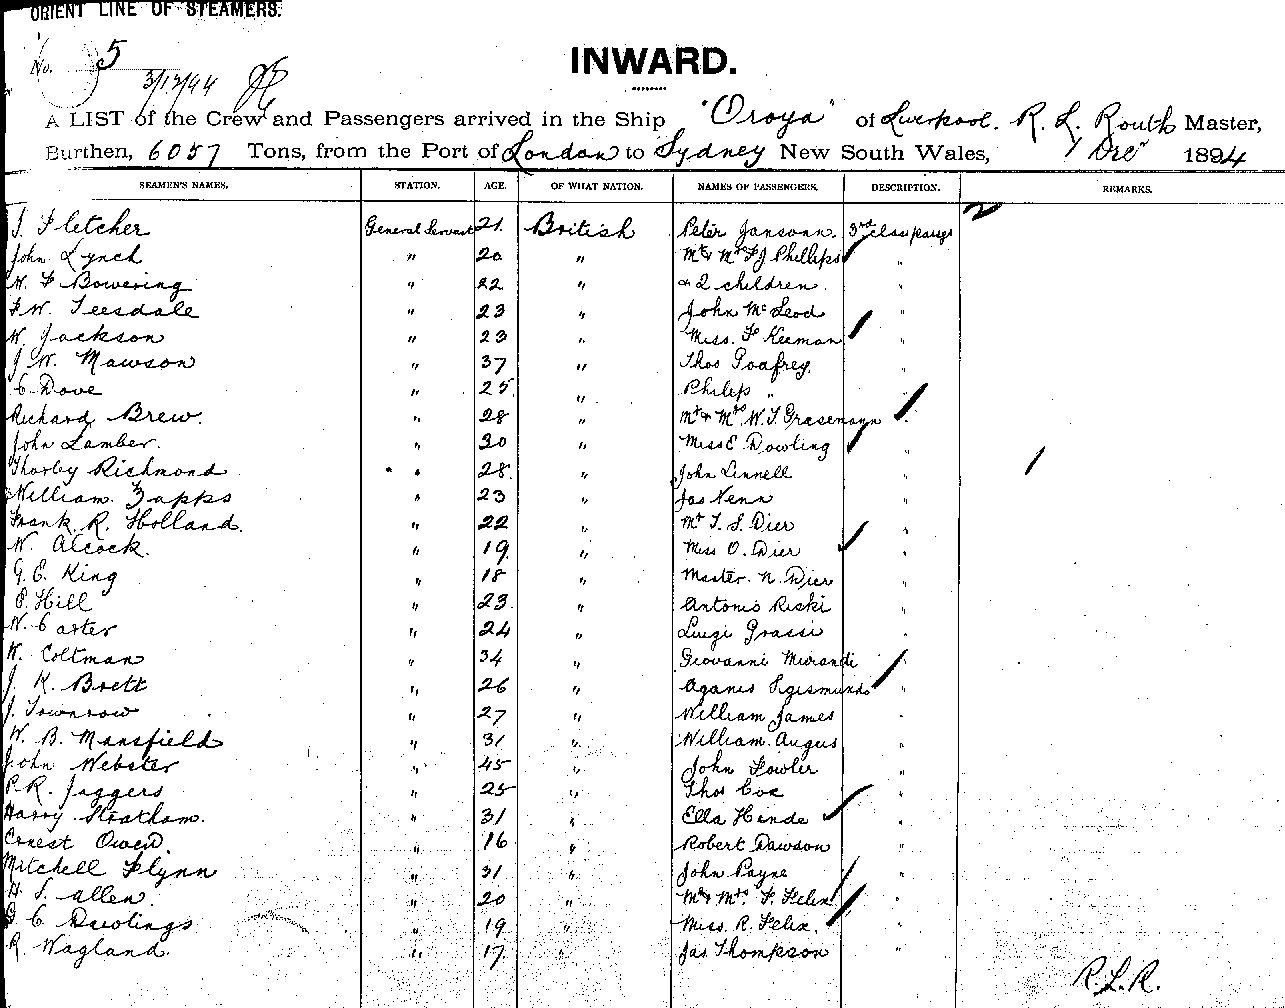 ORIENT LINE OF STEAMERS.
No. 5
3/12/94
INWARD.
A LIST of the Crew and Passengers arrived in the Ship "Oroya" of Liverpool. R. L. Routh Master,
Burthen, 6057 Tons, from the Port of London to Sydney New South Wales, 1 Decr 1894
SEAMEN'S NAMES. STATION. AGE. OF WHAT NATION. NAMES OF PASSENGERS. DESCRIPTION. REMARKS.
J. Fletcher General Servant 21. British Peter Jansonn. 3rd class passgr
John Lynch " 20 " Mr & Mrs F J Phillips "
W. F Bowering " 22 " & 2 children. "
F. W. Teesdale " 23 " John McLeod "
W. Jackson " 23 " Miss. F Keeman
J. W. Mawson " 37 " Thos Goafrey. "
C Dove " 25 " Philip " "
Richard Brew. " 28 " Mr & Mrs W. T. Grasemann "
John Lamber. " 30 " Miss E. Dowling "
Thorby Richmond " 28. " John Linnell "
William. Zapps " 23 " Jas Venn "
Frank. R. Holland. " 22 " Mr T. S. Dier "
W. Alcock. " 19 " Miss O. Dier "
G. E. King " 18 " Master. N. Dier "
P. Hill " 23 " Antonio Riski "
W. Carter " 24 " Luigi Grassi "
W. Coltman " 34 " Giovanni Murandi "
J. K. Brett " 26 " Aganis Sigismundo "
J. Townrow " 27 " William James "
W. B. Mansfield " 31 " William Angus "
John Webster " 45 " John Fowler "
P. R. Jaggers " 25 " Thos Coe "
Harry Stratham. " 31 " Ella Hinde "
Ernest Owen. " 16 " Robert Dawson "
Mitchell Flynn " 31 " John Payne "
H. S. Allen. " 20 " Mr & Mrs. F. Felix "
C Dawlings " 19 " Miss. R. Felix. "
R. Wagland. " 17. " Jas Thompson "
R.L.R.